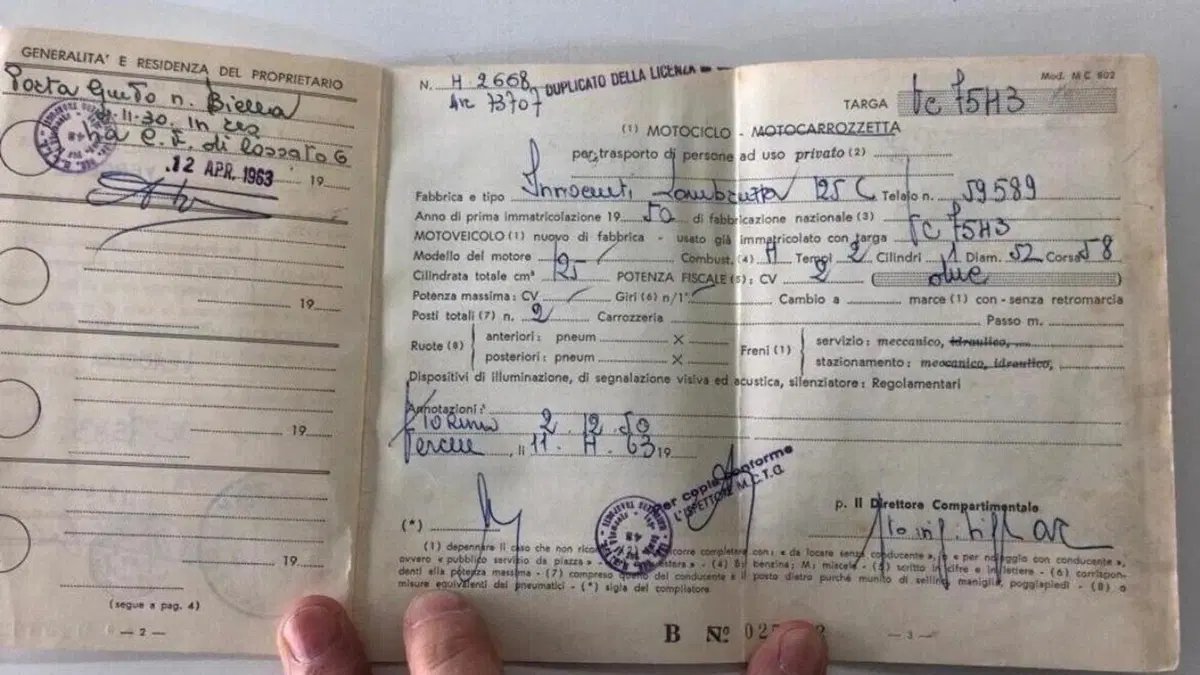 GENERALITA' E RESIDENZA DEL PROPRIETARIO
Porta Guido n. Biella
11-30. in res
12 APR. 1963 19
19
19
19
(segue a pag. 4)
— 2 —
N. H.2668 DUPLICATO DELLA LICENZA
73707
(1) MOTOCICLO - MOTOCARROZZETTA
per trasporto di persone ad uso privato (2)
Fabbrica e tipo Innocenti Lambretta 125 C Telaio n. 59589
Anno di prima immatricolazione 19 50 di fabbricazione nazionale (3)
MOTOVEICOLO (1) nuovo di fabbrica - usato già immatricolato con targa Vc 7543
Modello del motore Combust. (4) M Tempi 2 Cilindri 1 Diam. 52 Corsa 58
Cilindrata totale cm³ 125 POTENZA FISCALE (5): CV 2 due
Potenza massima: CV Giri (6) n/1' Cambio a marce (1) con - senza retromarcia
Posti totali (7) n. 2 Carrozzeria Passo m.
Ruote (8) anteriori: pneum × Freni (1) servizio: meccanico, idraulico,
posteriori: pneum × stazionamento: meccanico, idraulico,
Dispositivi di illuminazione, di segnalazione visiva ed acustica, silenziatore: Regolamentari
Annotazioni:
Torino 2.12.50
, li 11. 4. 63 19
Per copia conforme
L'ISPETTORE M.C.T.C.
(*)
p. Il Direttore Compartimentale
(1) depennare il caso che non ricorre completare con: « da locare senza conducente », o « per noleggio con conducente »,
ovvero « pubblico servizio da piazza » - (4) B: benzina; M: miscela - (5) scritto in cifre e in lettere - (6) corrispon-
denti alla potenza massima - (7) compreso quello del conducente e il posto dietro purché munito di sellino, maniglia, poggiapiedi - (8) o
misure equivalenti dei pneumatici - (*) sigla del compilatore
B Nº 025
— 3 —
Mod. M C 802
TARGA Vc 7543